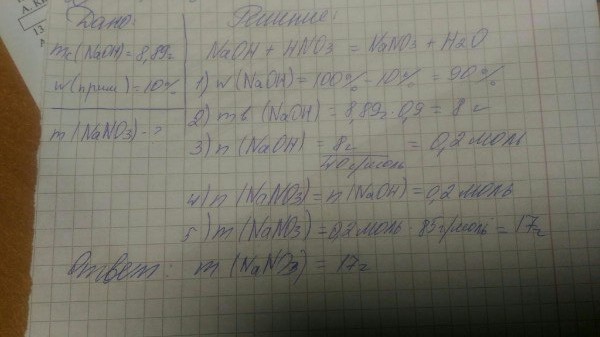 Дано:
mc(NaOH)=8,89г
w(прим)=10%
m(NaNO3)-?
Решение:
NaOH + HNO3 = NaNO3 + H2O
1) w(NaOH)=100%-10%=90%
2) mв(NaOH)=8,89г·0,9=8г
3) n(NaOH)=8г/40г/моль=0,2 моль
4) n(NaNO3)=n(NaOH)=0,2 моль
5) m(NaNO3)=0,2 моль · 85г/моль=17г
Ответ: m(NaNO3)=17г